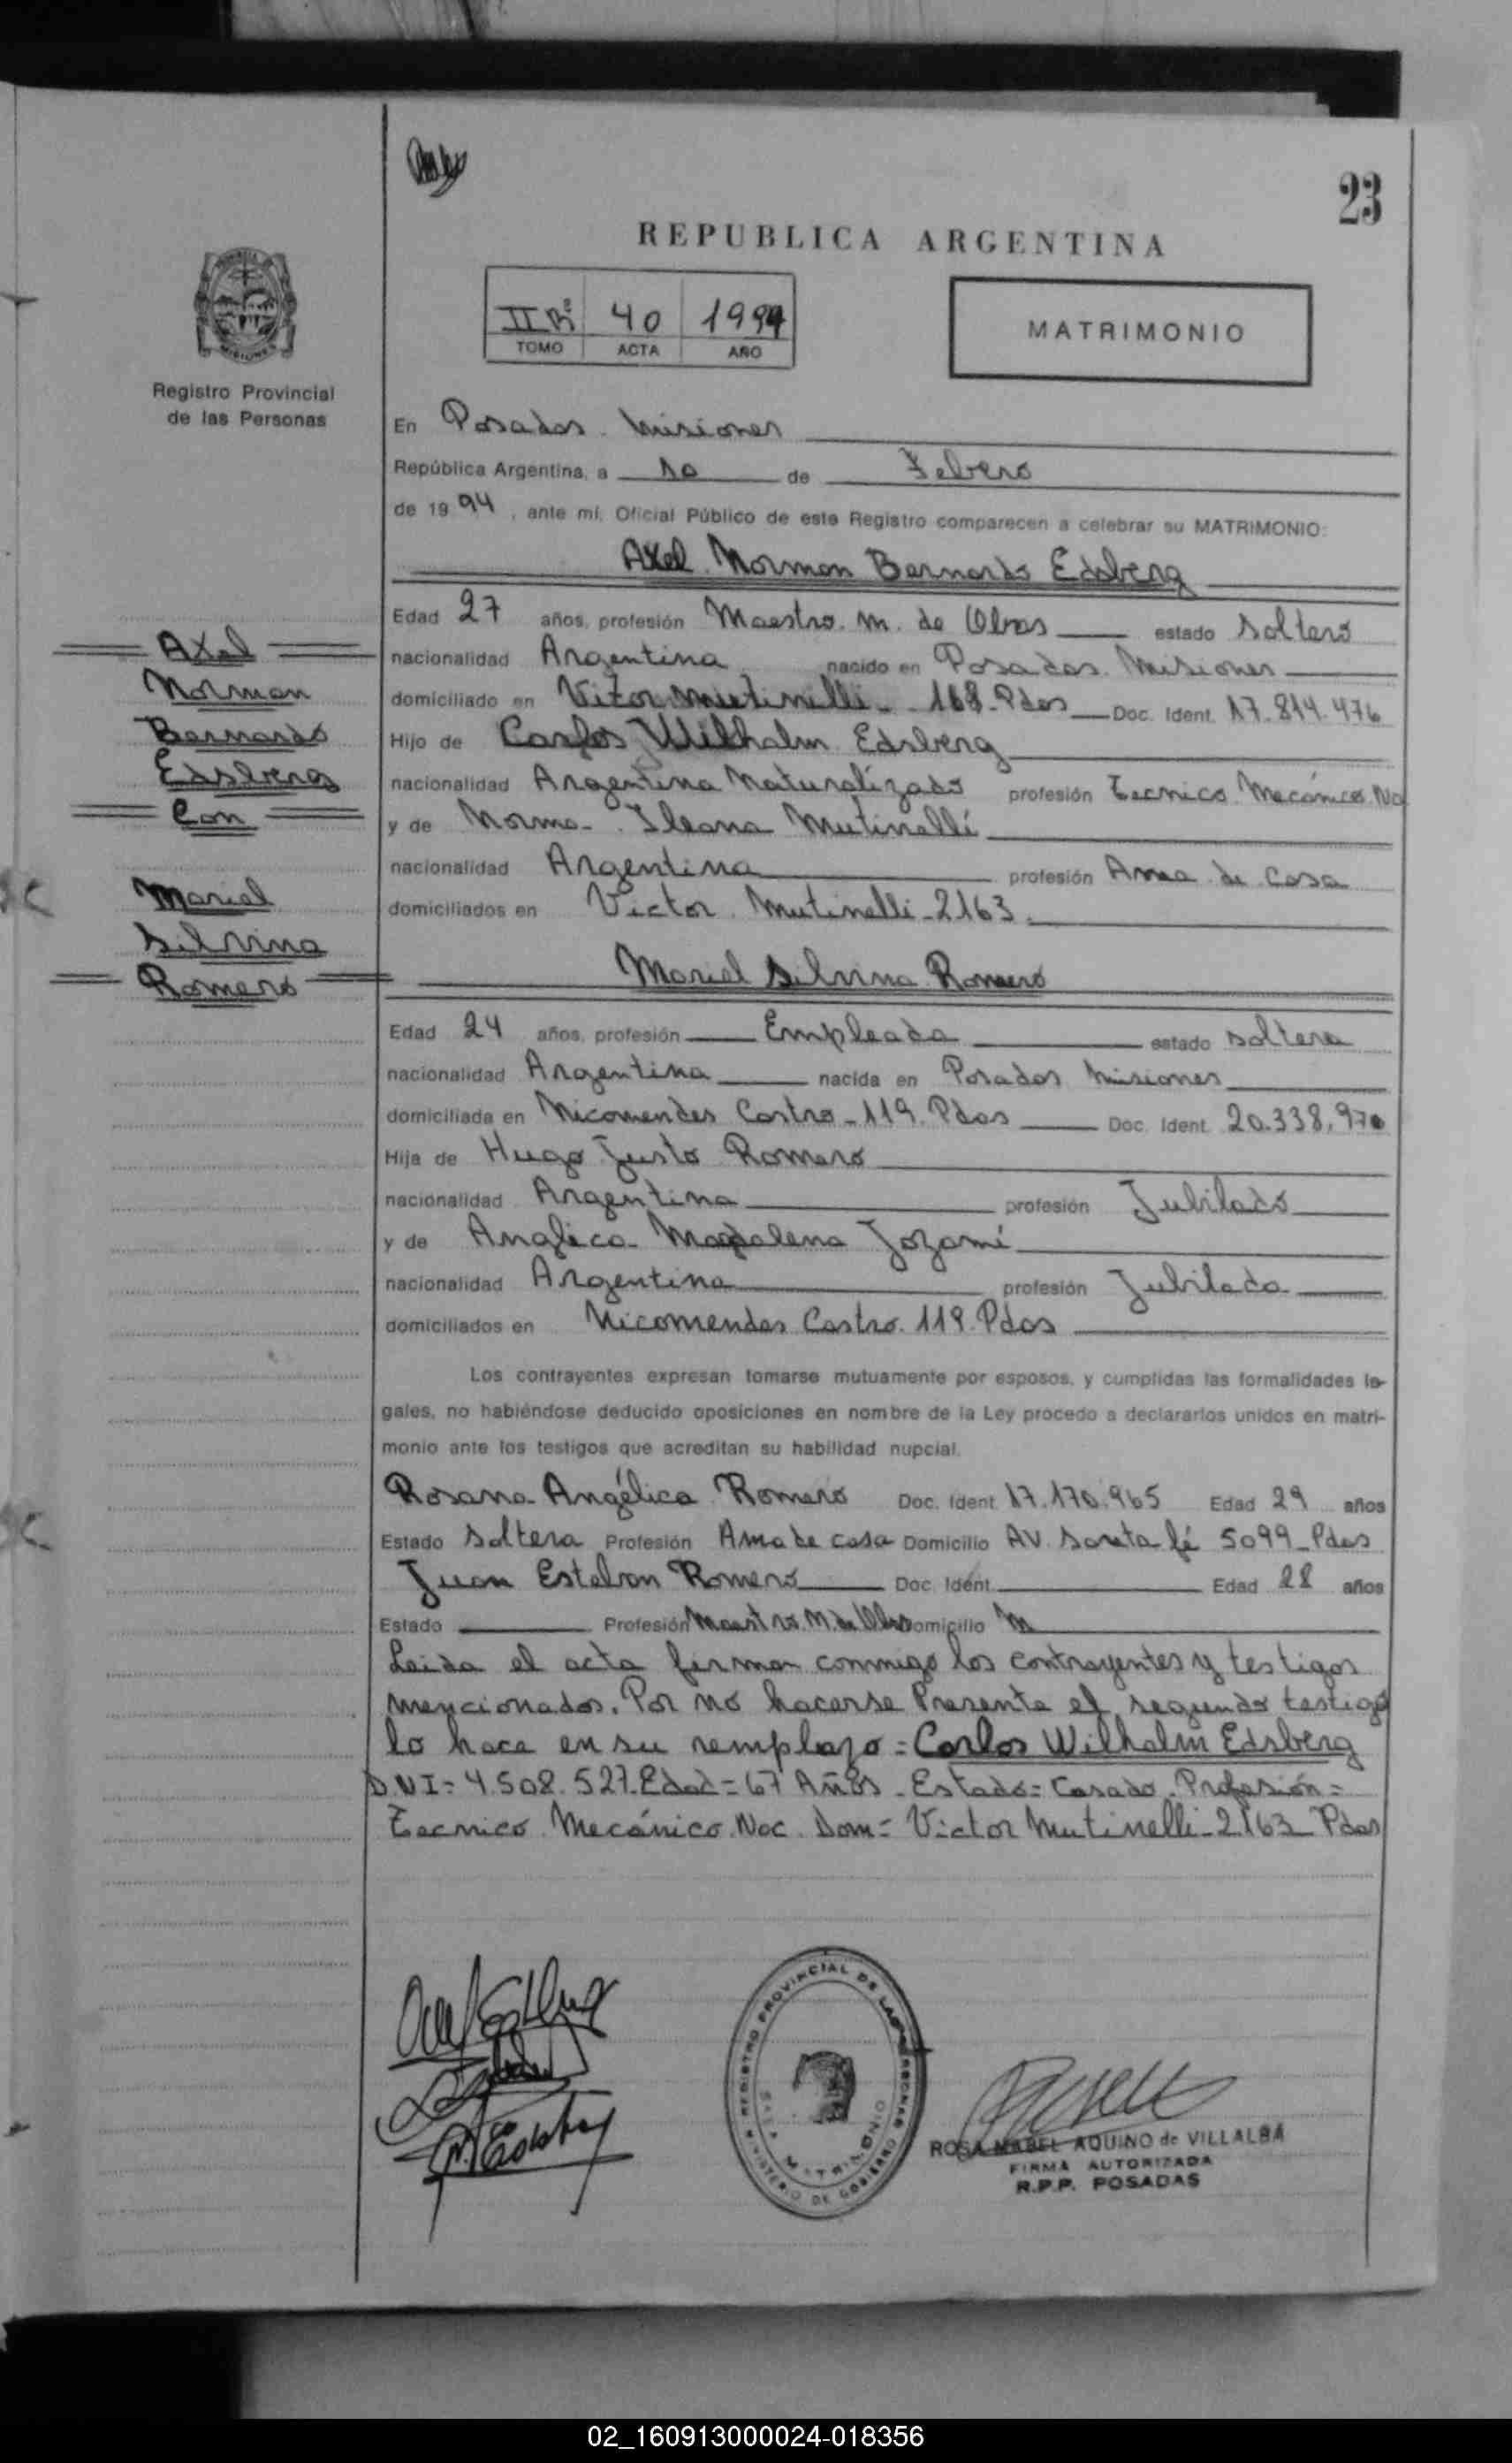 23
REPUBLICA ARGENTINA
40 1994
TOMO ACTA AÑO
MATRIMONIO
Registro Provincial
de las Personas
En Posadas. Misiones
República Argentina, a 10 de Febrero
de 1994, ante mí, Oficial Público de este Registro comparecen a celebrar su MATRIMONIO:
Axel Norman Bernardo Edsberg
Edad 27 años, profesión Maestro. M. de Obras estado Soltero
nacionalidad Argentina nacido en Posadas. Misiones
domiciliado en Pdas Doc. Ident. 17.814.476
Hijo de Carlos Wilhalm Edsberg
nacionalidad Argentina Naturalizado profesión Tecnico. Mecánico. Na
y de Norma Ileana Mutinelli
nacionalidad Argentina profesión Ama de Casa
domiciliados en Victor. Mutinelli-2163.
Axel
Norman
Bernardo
Edsberg
Con
Mariel
Silvina
Romero
Mariel Silvina Romero
Edad 24 años, profesión Empleada estado Soltera
nacionalidad Argentina nacida en Posadas Misiones
domiciliada en Nicomendes Castro-119. Pdas Doc. Ident. 20.338.970
Hija de Hugo Justo Romero
nacionalidad Argentina profesión Jubilado
y de Angelica Magdalena Jozami
nacionalidad Argentina profesión Jubilada
domiciliados en Nicomendes Castro. 119. Pdas
Los contrayentes expresan tomarse mutuamente por esposos, y cumplidas las formalidades le-
gales, no habiéndose deducido oposiciones en nombre de la Ley procedo a declararlos unidos en matri-
monio ante los testigos que acreditan su habilidad nupcial.
Rosana Angélica Romero Doc. Ident. 17.170.965 Edad 29 años
Estado Soltera Profesión Ama de casa Domicilio AV. Santa fé 5099-Pdas
Juan Esteban Romero Doc. Ident. Edad 28 años
Estado Profesión Maestro. M. de Obras Domicilio
Leida el acta firman conmigo los contrayentes y testigos
mencionados. Por no hacerse Presente el segundo testigo
lo hace en su remplazo = Carlos Wilhalm Edsberg
D.N.I = 4.508.527. Edad = 67 Años. Estado = Casado. Profesión =
Tecnico. Mecánico. Nac. Dom = Victor Mutinelli-2163-Pdas
REGISTRO PROVINCIAL DE LAS PERSONAS
MATRIMONIO
MINISTERIO DE GOBIERNO
ROSA MABEL AQUINO de VILLALBA
FIRMA AUTORIZADA
R.P.P. POSADAS
02_160913000024-018356